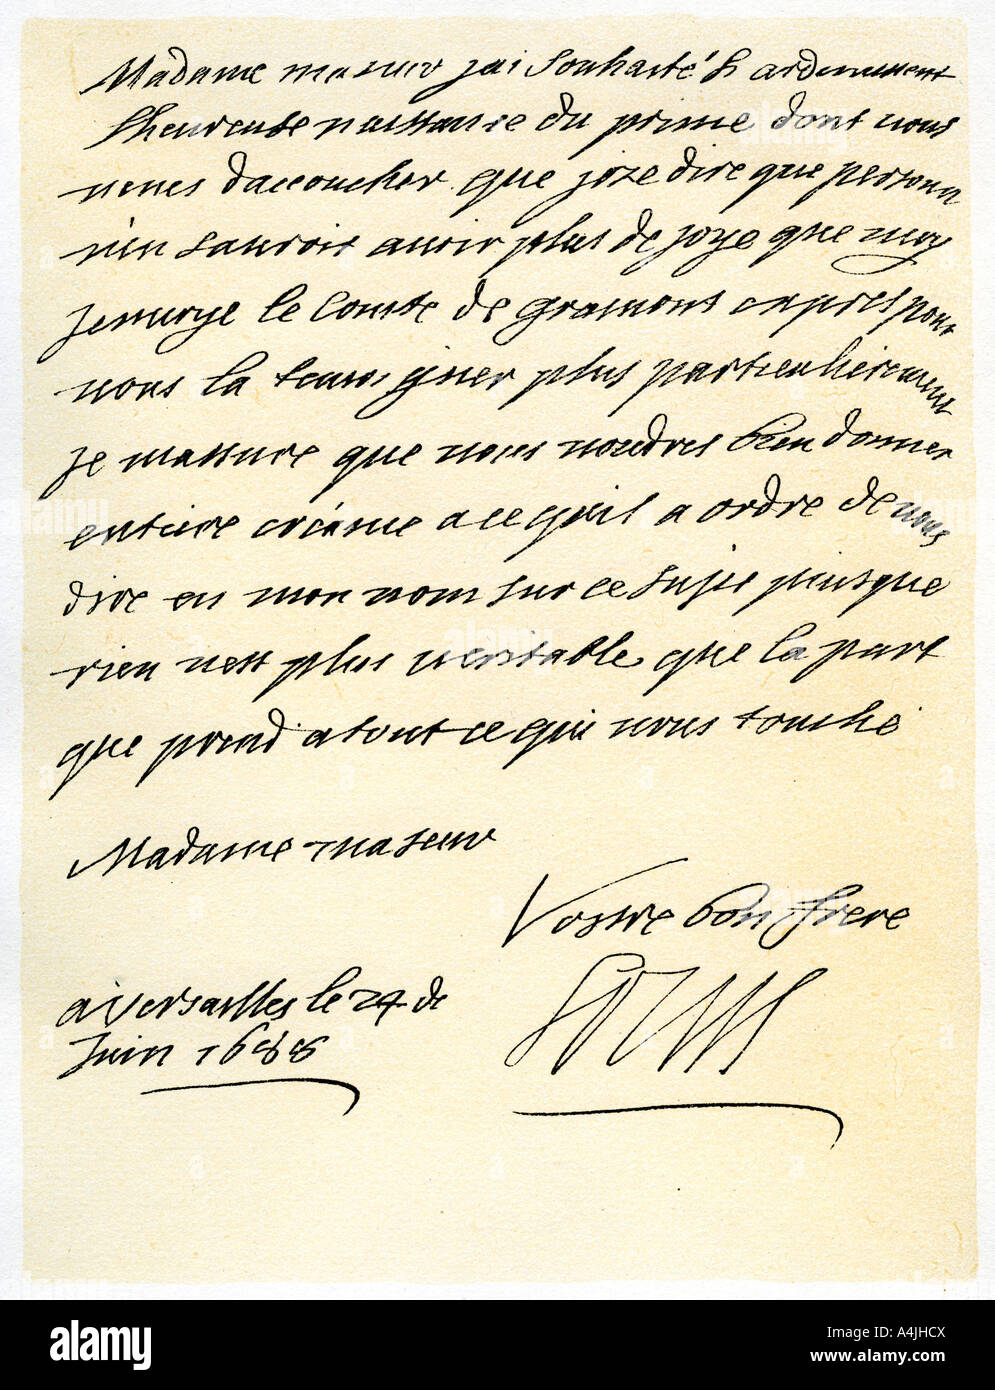 Madame ma seur jai souhaité si ardemment
lheureuse naissance du prince dont vous
venes daccoucher que joze dire que personn
n'en sauroit avoir plus de joye que moy
jenvoye le Comte de gramont expres pour
vous la temoigner plus particulierement
je massure que vous voudres bien donner
entiere créance a ce quil a ordre de vous
dire en mon nom sur ce sujet puisque
rien nest plus veritable que la part
que prend a tout ce qui vous touche
Madame ma seur
Vostre bon frere
Louis
a Versailles le 24 de
Juin 1688
alamy
Image ID: A4JHCX
www.alamy.com